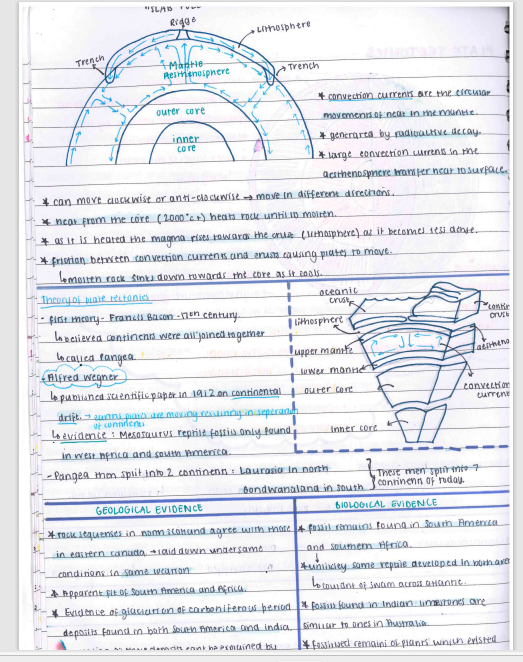 "SLAB PULL"
Ridge
Lithosphere
Trench
Mantle
Aesthenosphere
Trench
outer core
inner
core
* convection currents are the circular
movements of heat in the mantle.
* generated by radioactive decay.
* large convection currents in the
aesthenosphere transfer heat to surface.
* can move clockwise or anti-clockwise → move in different directions.
* heat from the core (2000°c+) heats rock until is molten.
* as it is heated the magma rises towards the crust (lithosphere) as it becomes less dense.
* friction between convection currents and crust causing plates to move.
↳ molten rock sinks down towards the core as it cools.
Theory of plate tectonics
- first theory - Francis Bacon - 17th century
↳ believed continents were all joined together
↳ called Pangea.
- Alfred Wegner
↳ published scientific paper in 1912 on continental
drift. → earths plates are moving resulting in seperation
of continents.
↳ evidence : Mesosaurus reptile fossils only found
in west Africa and south America.
- Pangea then split into 2 continents : Laurasia in north
Gondwangland in south
These then split into 7
continents of today.
oceanic
crust
contin
crust
lithosphere
aestheno
upper mantle
lower mantle
convection
current
outer core
inner core
GEOLOGICAL EVIDENCE
* rock sequences in north scotland agree with those
in eastern canada → laid down under same
conditions in same location
* Apparent fit of South America and Africa.
* Evidence of glaciation of carboniferous period
deposits found in both South America and India
cant be explained by
BIOLOGICAL EVIDENCE
* fossil remains found in South America
and southern Africa.
↓
* unlikely same reptile developed in both areas
↳ couldnt of swam across atlantic.
* fossils found in Indian limestones are
similar to ones in Australia.
* fossilised remains of plants which existed